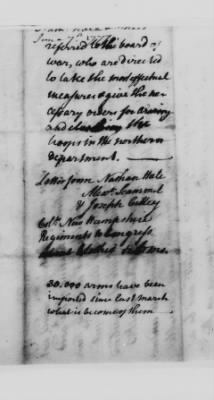 June 7th 1777
referred to the board of
war, who are directed
to take the most effectual
measures & give the nec
essary orders for arming
and cloathing the
troops in the northern
department. —
Letter from Nathan Hale
Alexr. Scammel
& Joseph Cilley
Cols. New Hampshire
Regiments to Congress
30.000 arms have been
imported since last march
what is become of them